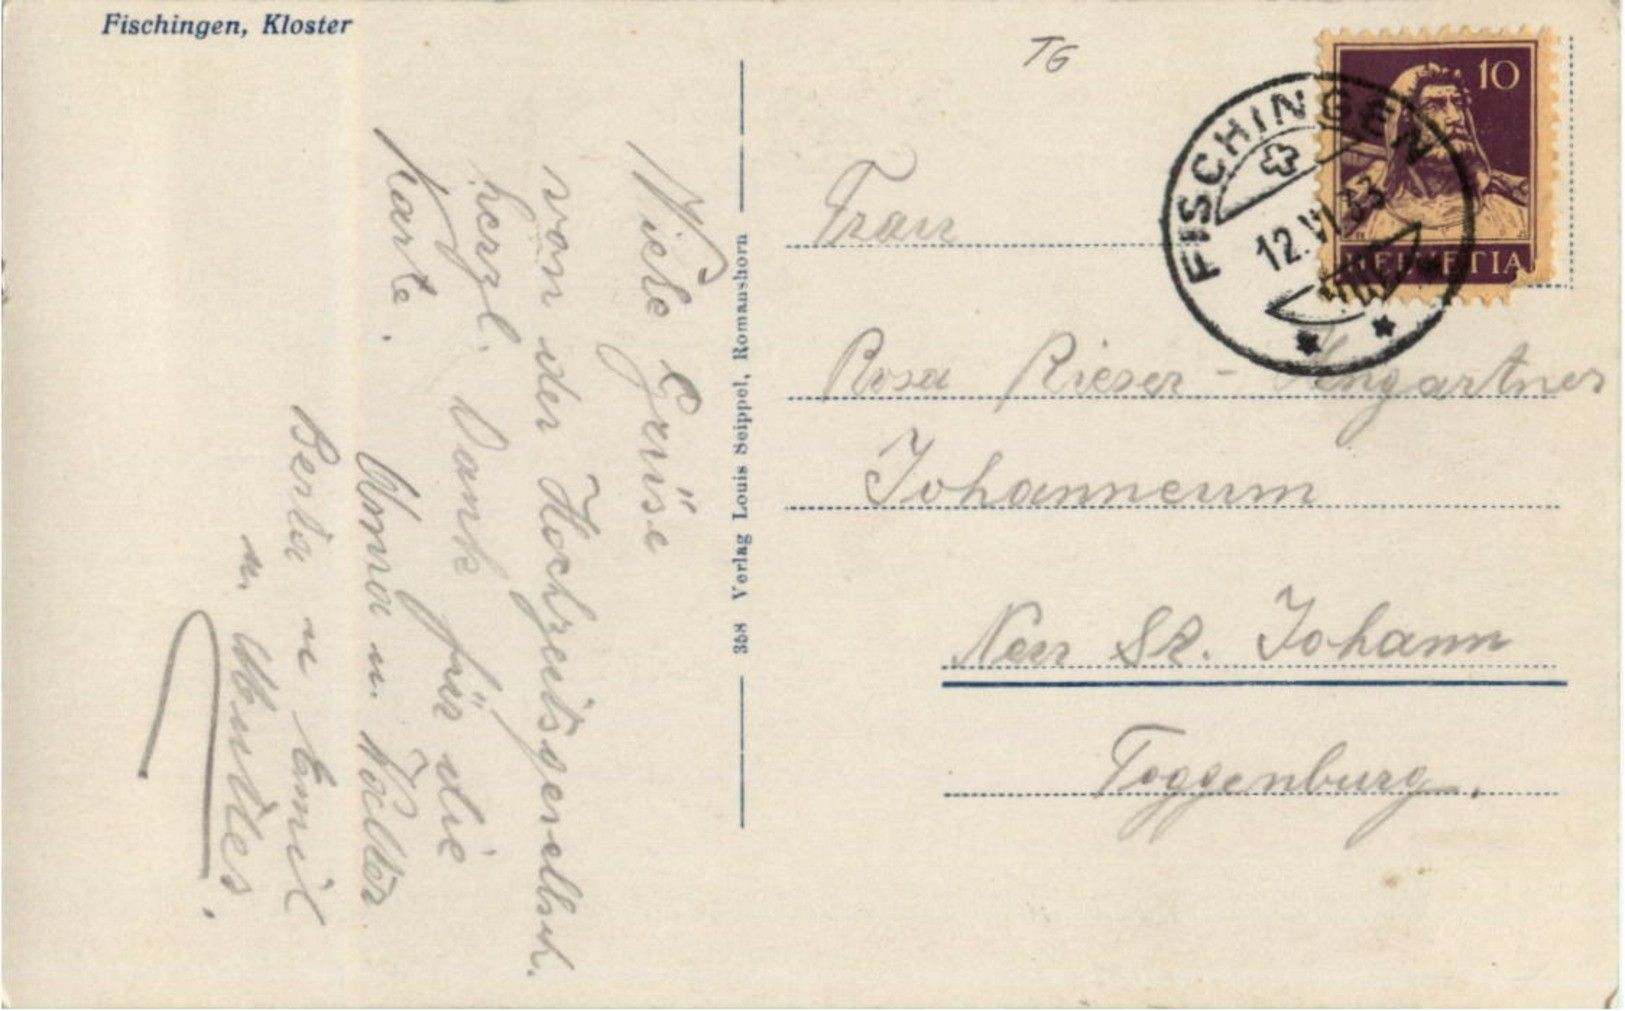 Fischingen, Kloster
Viele Grüse
von der Hochzeitsgesellsch.
herzl. Dank für die
Karte.
Anna u. Walter
Berta u Emil
u.
358 Verlag Louis Seippel, Romanshorn
TG
10
HELVETIA
FISCHINGEN
12.VI.33
Frau
Rosa Rieser - Sengartner
Johanneum
Neu St. Johann
Toggenburg.